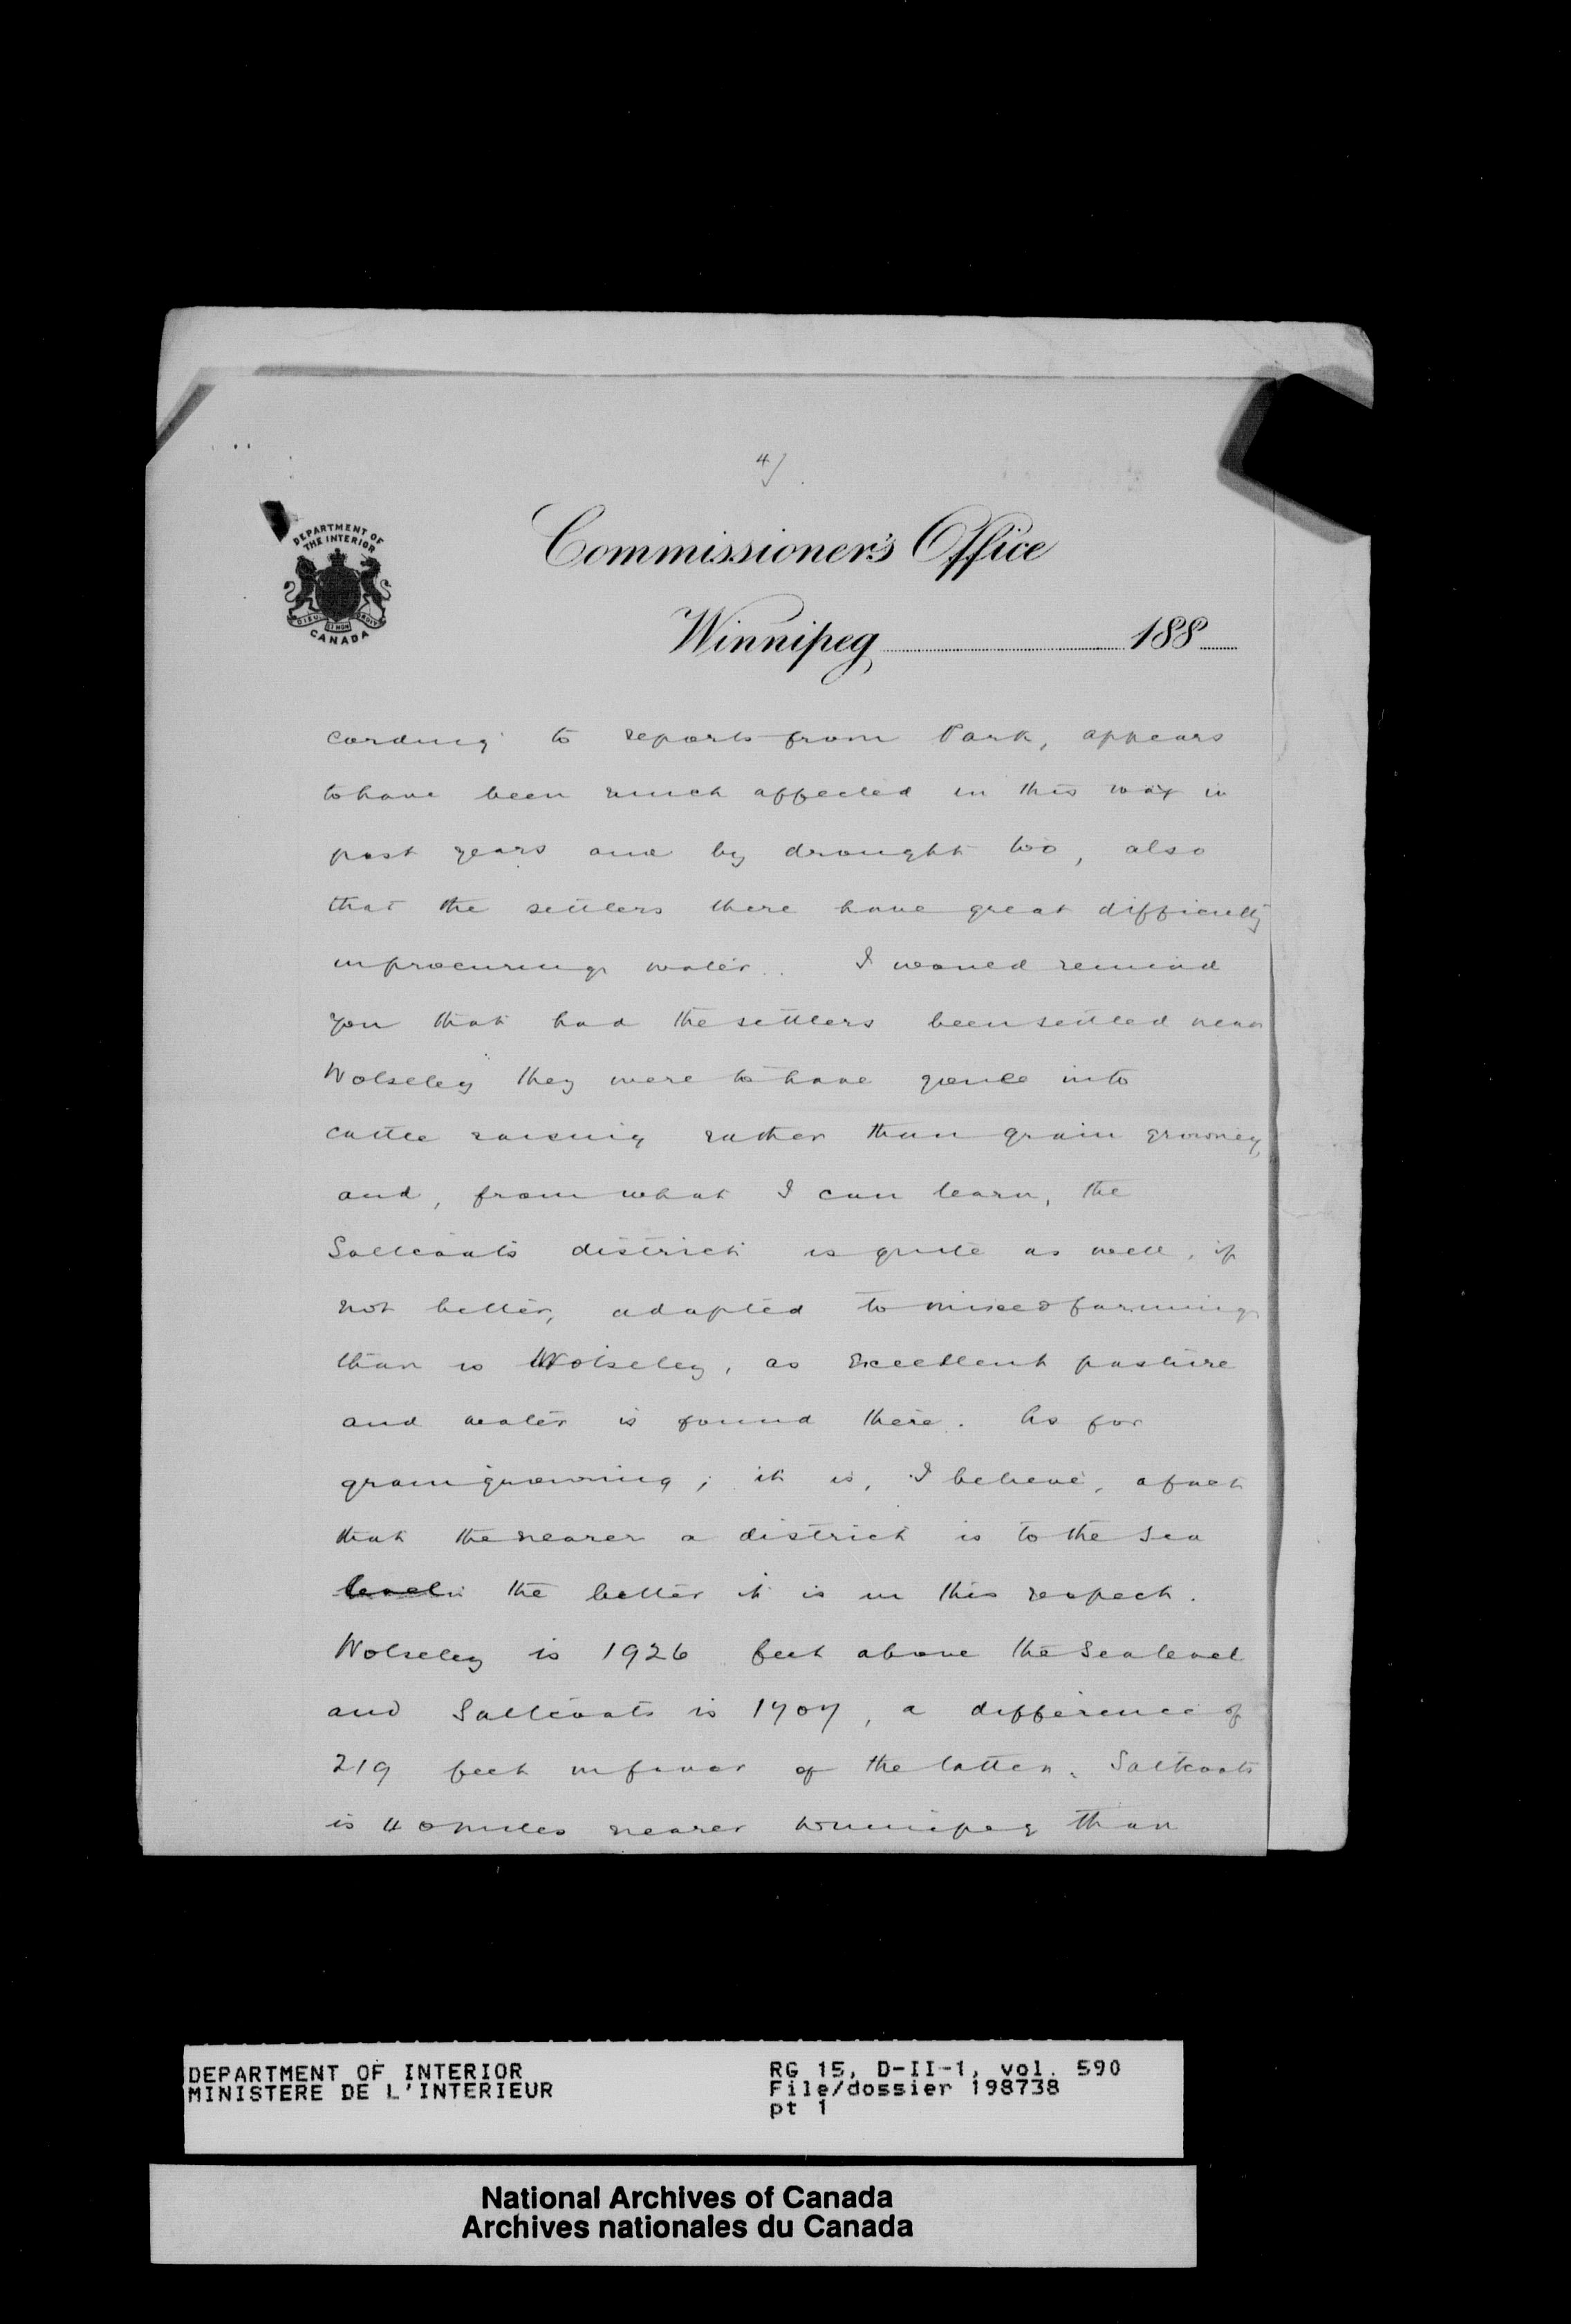 4)
DEPARTMENT OF
THE INTERIOR
DIEU ET MON DROIT
CANADA
Commissioner's Office
Winnipeg 188
cording to reports from Park, appears
to have been much affected in this way in
past years and by drought too, also
that the settlers there have great difficulty
in procuring water. I would remind
you that had the settlers been settled near
Wolseley they were to have gone into
cattle raising rather than grain growing,
and, from what I can learn, the
Saltcoats district is quite as well, if
not better, adapted to mixed farming
than is Wolseley, as excellent pasture
and water is found there. As for
grain growing; it is, I believe, a fact
that the nearer a district is to the sea
level the better it is in this respect.
Wolseley is 1926 feet above the sea level
and Saltcoats is 1707, a difference of
219 feet in favor of the latter. Saltcoats
is 40 miles nearer Winnipeg than
DEPARTMENT OF INTERIOR
MINISTERE DE L'INTERIEUR
RG 15, D-II-1, vol. 590
File/dossier 198738
pt 1
National Archives of Canada
Archives nationales du Canada